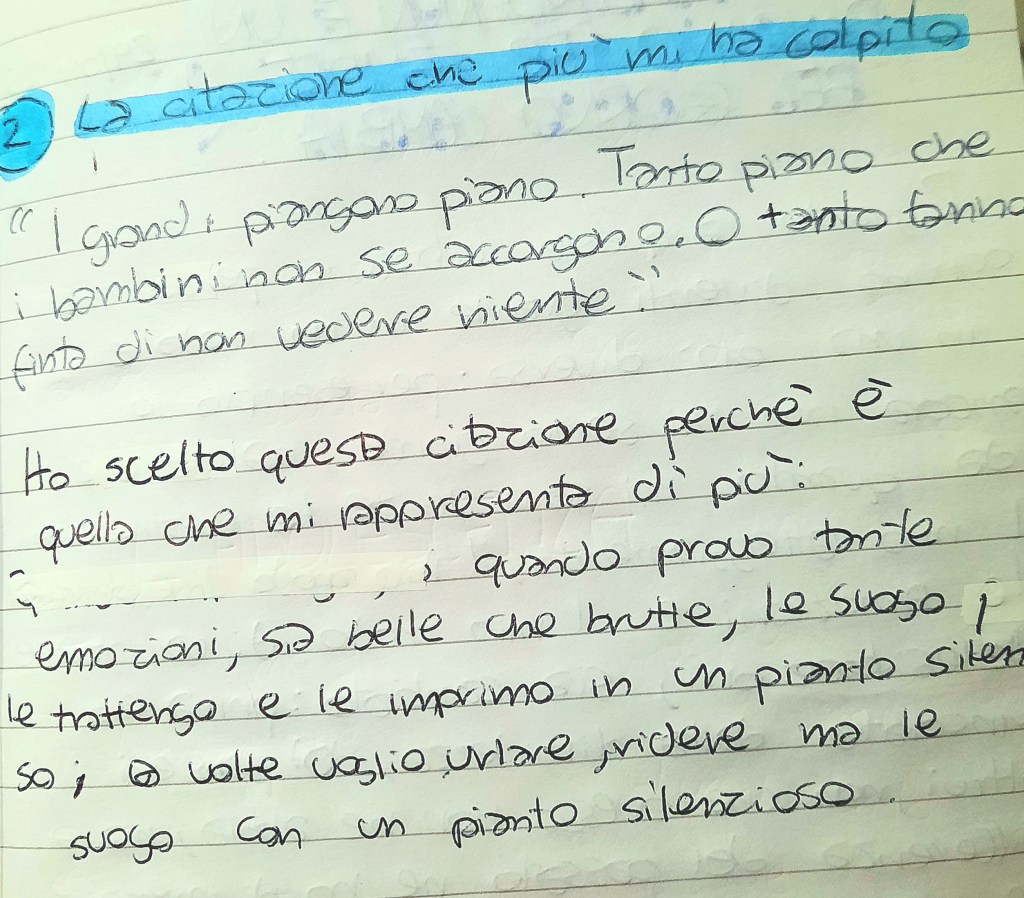 2 La citazione che più mi ha colpito
" I grandi piangono piano. Tanto piano che
i bambini non se accorgono. O tanto fanno
finta di non vedere niente."
Ho scelto questa citazione perchè è
quella che mi rappresenta di più:
, quando provo tante
emozioni, sia belle che brutte, le sfogo ;
le trattengo e le imprimo in un pianto silen
so; a volte voglio urlare, ridere ma le
sfogo con un pianto silenzioso.